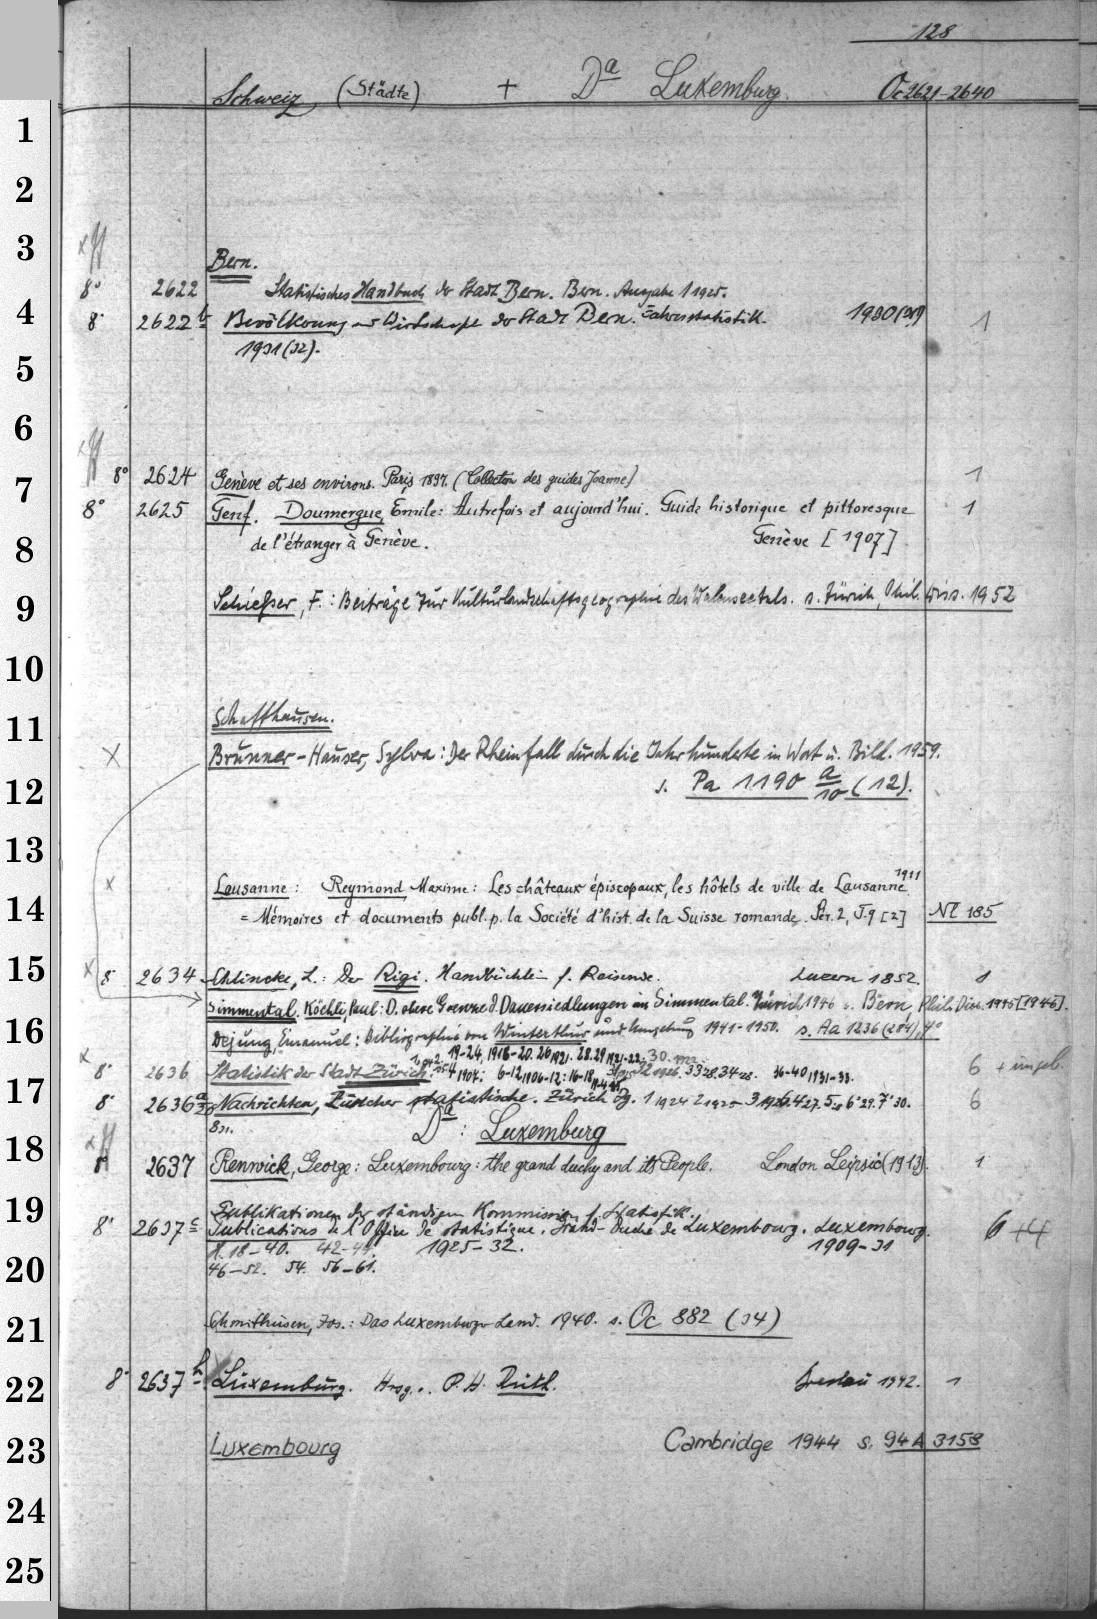 128
Schweiz (Städte) + Dª Luxemburg. Oc 2621-2640
1
2
3
Bern.
8° 2622 Statistisches Handbuch der Stadt Bern. Bern. Ausgabe 1 1925.
4
8° 2622 b Bevölkerung und Wirtschaft der Stadt Bern. Jahresstatistik. 1930(31) 1
1931(32).
5
6
8° 2624 Genève et ses environs. Paris 1897. (Collection des guides Joanne) 1
7
8° 2625 Genf. Doumergue, Emile: Autrefois et aujourd'hui. Guide historique et pittoresque 1
8
de l'étranger à Genève. Genève [1907]
9
Schiesser, F.: Beiträge zur Kulturlandschaftsgeographie des Walenseetals. s. Zürich, Phil. Diss. 1952
10
11
Schaffhausen.
x Brunner-Hauser, Sylva: Der Rheinfall durch die Jahrhunderte in Wort u. Bild. 1959.
12
s. Pa 1190 a/10 (12).
13
x Lausanne: Reymond, Maxime: Les châteaux épiscopaux, les hôtels de ville de Lausanne 1911
14
= Mémoires et documents publ. p. la Société d'hist. de la Suisse romande. Sér. 2, T. 9 [2] Nl 185
15
x 8° 2634 L.: Der Rigi. Handbüchlein f. Reisende. Luzern 1852. 1
Simmental. Köchli, Paul: D. obere Grenze d. Dauersiedlungen im Simmental. Zürich 1946 s. Bern, Phil. Diss. 1945 [1946].
16
Dejung, Emanuel: Bibliographie von Winterthur und Umgebung 1941-1950. s. Aa 1236 (284), 4°
19-24, 1916-20. 26 1921. 28.29 1921-22. 30.
x 8° 2636 Statistik der Stadt Zürich. 4 1907: 6-12, 1906-12: 16-18 36-40 1931-33. 6
17
8° 2636 a Nachrichten, Zürcher statistische. Zürich Jg. 1 1924 2 1925 - 6
8n. Dª: Luxemburg
18
8° 2637 Renwick, George: Luxembourg: the grand duchy and its People. London Leipsic (1913). 1
19
Publikationen der ständigen Kommission f. Statistik.
8° 2637 c Publications de l'Office de statistique. Grand-Duché de Luxembourg. Luxembourg. 6 +4
H. 18-40. 42-44. 1925-32. 1909-31
20
46-52. 54. 56-61.
21
Schmithüsen, Jos.: Das Luxemburger Land. 1940. s. Oc 882 (34)
22
8° 2637 h Luxemburg. Hrsg. v. P. H. Breslau 1942. 1
23
Luxembourg Cambridge 1944 s. 94 A 3158
24
25